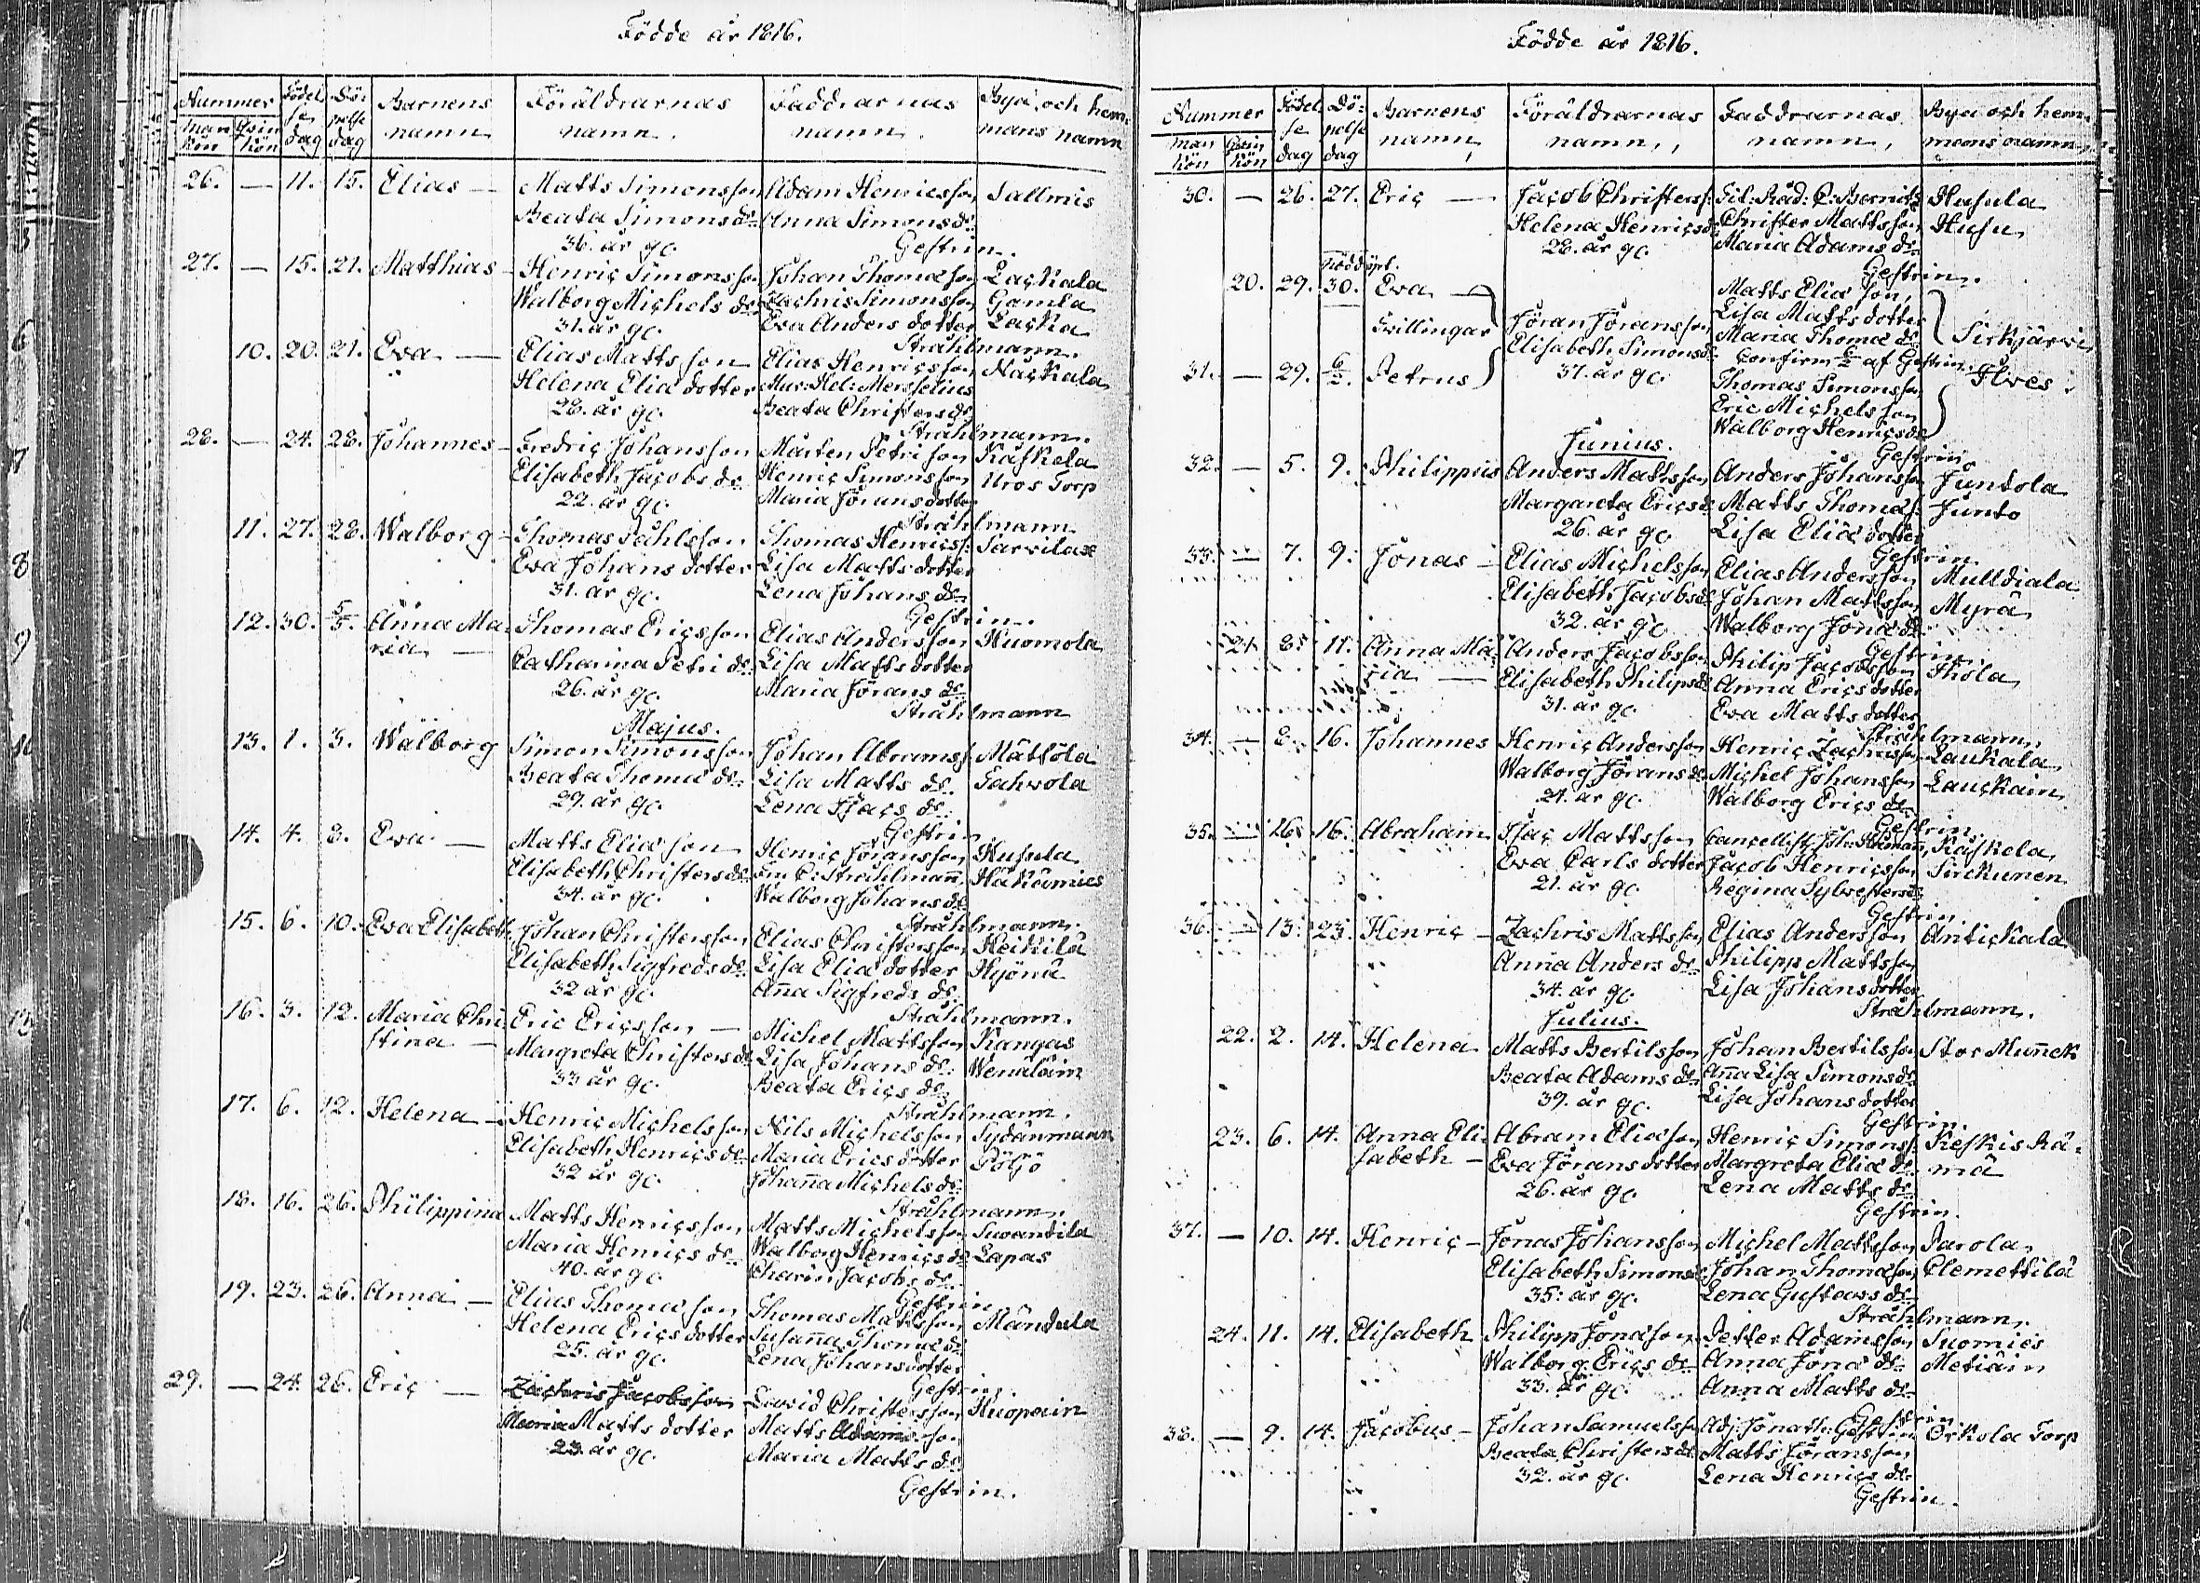 Födde år 1816.
Nummer Födelse dag Döpelse dag Barnens namn Föräldrarnas namn. Faddrarnas namn. Byä och hemmans namn
man kön qvin kön
26. — 11. 15. Elias — Matts Simonsson Adam Henricsson Sallmis
Beata Simons dr. Anna Simons dr.
36. år gl. Gestrin.
27. — 15. 21. Matthias — Henric Simonsson Johan Thomæson Lackala
Walborg Michels dr. Zachris Simonsson Gamla
31. år gl. Eva Anders dotter Lacka
Stråhlmann.
10. 20. 21. Eva — Elias Mattsson Elias Henricsson Nackala
Helena Eliæ dotter
28. år gl. Beata Christers dr.
Stråhlmann.
28. — 24. 28. Johannes — Fredric Johansson Mårten Petri son Kaskela
Elisabeth Jacobs dr. Henric Simonsson Uros Torp
22. år gl. Maria Jörans dotter
Stråhlmann.
11. 27. 28. Walborg — Thomas Påhlsson Thomas Henricss: Sarvilax
Eva Johans dotter Lisa Matts dotter
31. år gl. Lena Johans dr.
Gestrin.
12. 30. 5/5. Anna Ma- Thomas Ericsson Elias Andersson Huomola
ria — Catharina Petri dr. Lisa Matts dotter
26. år gl. Maria Jörans dr.
Stråhlmann
Majus.
13. 1. 3. Walborg Simon Simonsson Johan Abramss: Mattola
Beata Thomæ dr. Lisa Matts dr. Tahvola
29. år gl. Lena Isacs dr.
Gestrin
14. 4. 8. Eva — Matts Eliæ son Henric Jöransson Husula
Elisabeth Christers dr. C: Stråhlman̄. Hakamies
34. år gl. Walborg Johans dr.
Stråhlmann.
15. 6. 10. Eva Elisabeth Johan Christersson Elias Christersson Heickilä
Elisabeth Sigfreds dr. Lisa Eliæ dotter Hyönä
32 år gl. An̄a Sigfreds dr.
Stråhlmann.
16. 3. 12. Maria Chri- Eric Ericsson — Michel Mattsson Kangas
stina — Margreta Christers dr. Lisa Johans dr. Wenäläin
33 år gl. Beata Erics dr.
Stråhlmann.
17. 6. 12. Helena — Henric Michelsson Nils Michelsson Sydänmann
Elisabeth Henrics dr. Maria Erics dotter Pöljö
32 år gl. Johan̄a Michels dr.
Stråhlmann.
18. 16. 26. Philippina Matts Henricsson Matts Michelsson Suvantila
Maria Henrics dr. Walborg Henrics dr. Lapas
40. år gl. Charin Jacobs dr.
Gestrin
19. 23. 26. Anna — Elias Thomæ son Thomas Mattsson Mändula
Helena Erics dotter Susan̄a Thomæ dr.
25. år gl. Lena Johans dotter
Gestrin.
29. — 24. 26. Eric — Zachris Jacobsson David Christersson Huoparin
Maria Matts dotter Matts Adamsson
23 år gl. Maria Matts dr.
Gestrin.
Födde år 1816.
Nummer Födelse dag Döpelse dag Barnens namn, Föräldrarnas namn, Faddrarnas namn, Bya och hemmans namn
man kön qvin kön
30. — 26. 27. Eric — Jacob Christerss: Tit: Råd: C: Husula
Helena Henrics dr. Christer Mattsson Husu
28. år gl. Maria Adams dr.
Gestrin.
Nöddöpt.
20. 29. 30. Eva — Matts Eliæ son,
Lisa Matts dotter
Tvillingar Jöran Jöransson Maria Thomæ dr. Sirkjärvi
Elisabeth Simons dr. confirm 6/2 af Gestrin.
31. — 29. 6/2. Petrus 37. år gl. Thomas Simonsson Ilves
Eric Michelsson
Walborg Henrics dr.
Gestrin.
Junius.
32. — 5. 9. Philippus Anders Mattsson Anders Johansson Juntola
Margareta Erics dr. Matts Thomæs: Junto
26. år gl. Lisa Eliæ dotter
Gestrin.
33. — 7. 9. Jonas — Elias Michelsson Elias Andersson Mulldiala
Elisabeth Jacobs dr. Johan Mattsson Myrä
32. år gl. Walborg Jonæ dr.
Gestrin
21. 8. 11. Anna Ma- Anders Jacobsson Philip Jacobsson Ihola
ria — Elisabeth Philips dr. Anna Erics dotter
31. år gl. Eva Matts dotter
Stråhlmann.
34. — 8. 16. Johannes Henric Andersson Henric Zachrisson Laukala
Walborg Jörans dr. Michel Johansson Lauckain
21. år gl. Walborg Erics dr.
Gestrin.
35. — 16. 16. Abraham Isac Mattsson Cancellist: Kaskela
Eva Carls dotter Jacob Henricsson Sirckunen
21. år gl. Regina Sylvesters dr.
Gestrin.
36. — 13. 23. Henric — Zachris Mattsson Elias Andersson Antickala
Anna Anders dr. Philipp Mattsson
34. år gl. Lisa Johans dotter
Stråhlmann.
Julius.
22. 2. 14. Helena Matts Bertilsson Johan Bertilsson Stor Mun̄ck
Beata Adams dr. An̄a Lisa Simons dr.
39. år gl. Lisa Johans dotter
Gestrin.
23. 6. 14. Anna Eli- Abram Eliæson Henric Simonss: Keskis Rä-
sabeth — Eva Jörans dotter Margreta Eliæ dr. mä
26. år gl. Lena Matts dr.
Gestrin.
37. — 10. 14. Henric — Jonas Johansson Michel Mattsson Parola
Elisabeth Simons dr. Johan Thomæson Clemettilä
35. år gl. Lena Gustavs dr.
Stråhlmann.
24. 11. 14. Elisabeth Philipp Jonæson Petter Adamsson Suomies
Walborg Erics dr. Anna Jonæ dr. Metiäin
33. år gl. Anna Matts dr.
Gestrin
38. — 9. 14. Jacobus — Johan Samuelsson Adj: Jonath: Gestrin Orkola Torp
Beata Christers dr. Matts Jöransson
32. år gl. Lena Henrics dr.
Gestrin.